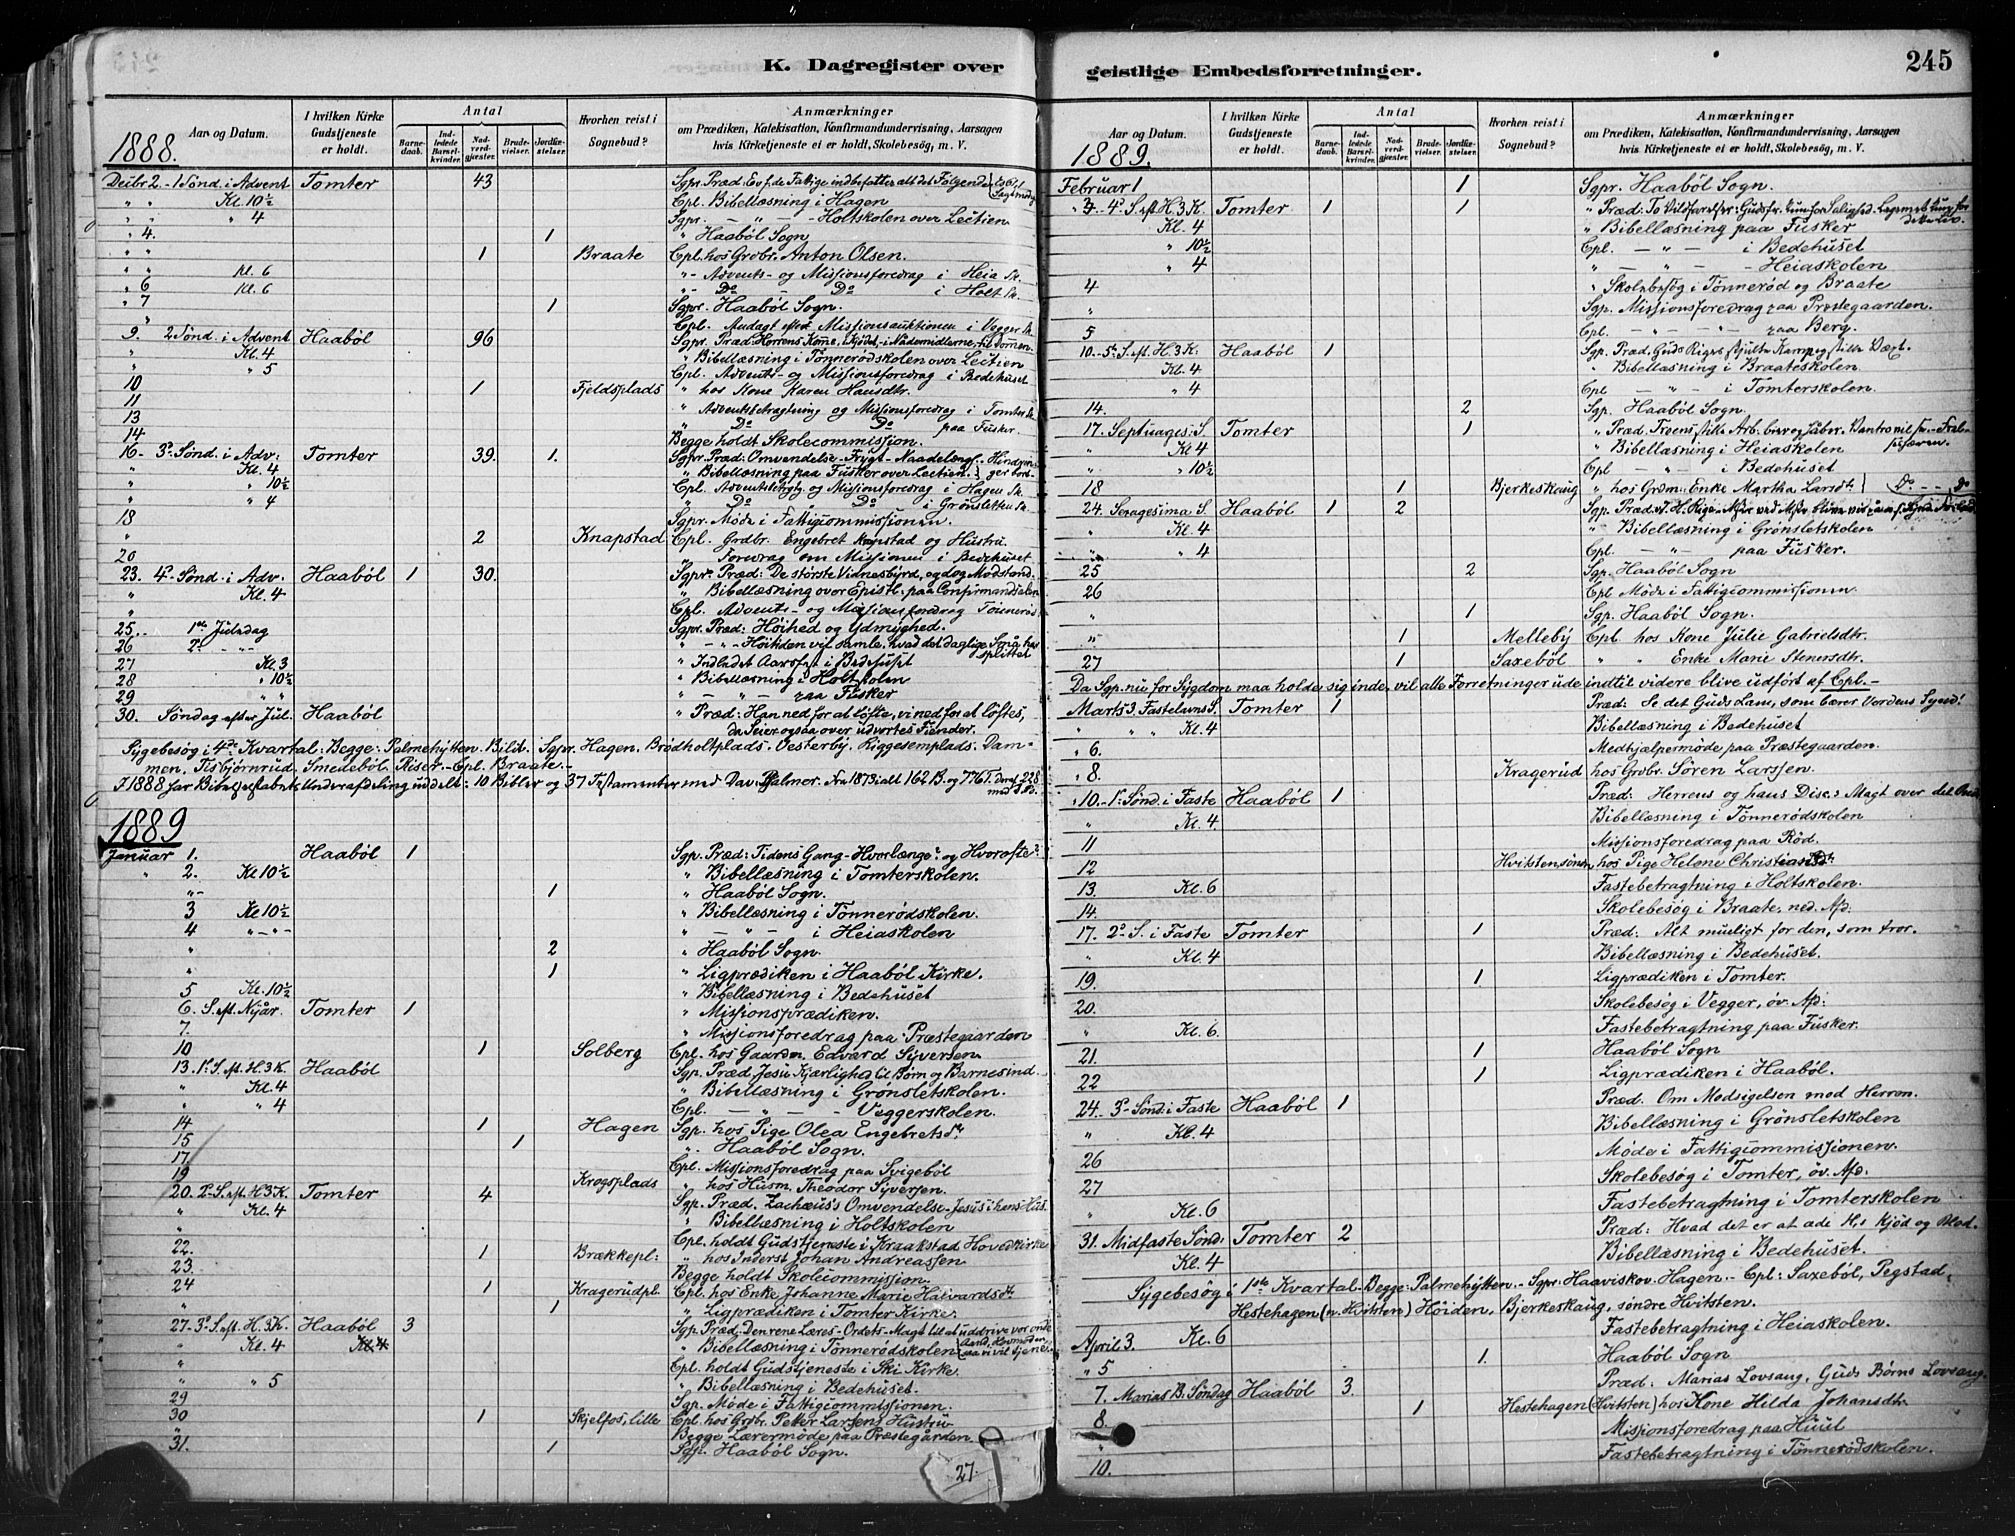 K. Dagregister over
Aar og Datum. I hvilken Kirke Gudstjeneste er holdt. Antal Barnedaab. Indledede Barselkvinder. Nadverdgjæster. Brudevielser. Jordfæstelser. Hvorhen reist i Sognebud? Anmærkninger om Prædiken, Katekisation, Konfirmandundervisning, Aarsagen hvis Kirketjeneste ei er holdt, Skolebesøg, m. V.
1888.
Decbr 2. - 1 Sönd. i Advent Tomter 43 Sgpr. Præd: Ev. f. de Fattige indbefatter alt det Følgende
" " Kl. 10½ Cpl. Bibellæsning i Hagen
" " 4 Sgpr. — " — Holtskolen over Lectien
" 4. 1 " Haaböl Sogn
" " 1 Braate Cpl. hos Grdbr. Anton Olsen.
" " Kl. 6 " - Advents- og Missionsforedrag i Heia Sk.
" 6 Kl. 6 " - Do - Do i Holt Sk.
" 7 1 Sgpr. Haaböl Sogn.
" Cpl. Andagt efter Missionsauktionen i Vegger Sk.
9. 2 Sönd. i Advent Haaböl 96 Sgpr. Præd: Herrens Komme i Kjödet, i Naademidlerne, til Dommen.
" Kl. 4 " Bibellæsning i Tönnerödskolen over Lectien
" " 5 Cpl. Advents- og Missionsforedrag i Bedehuset
10 1 Fjeldsplads " hos Kone Karen Hansdtr.
11 " Adventsbetragtning og Missionsforedrag i Tomter Sk.
13 " Do Do paa Fusker.
14 Begge holdt Skolecommission.
16- 3. Sönd. i Adv: Tomter 39. 1. Sgpr. Præd: Omvendelse - Frygt - Naadelængs. - Hindrin-
" Kl. 4 " Bibellæsning paa Fusker over Lectien. ger bort.
" " 10½ Cpl. Adventsbetrgtg og Missionsforedrag i Hagen Sk.
" " 4 " Do " Do i Grönsletten Sk.
18 Sgpr. Möde i Fattigcommissionen.
" 2 Knapstad Cpl. Grdbr. Engebret Knapstad og Hustru.
20 " Foredrag om Missionen i Bedehuset.
23. 4. Sönd. i Adv. Haaböl 1 30. Sgpr. Præd: De störste Vidnesbyrd, og dog Modstand.
" Kl. 4 " Bibellæsning over Epistl. paa Confirmandsalen
" Cpl. Advents- og Missionsforedrag Tönneröd
25.. 1ste Juledag Sgpr. Præd: Höihed og Ydmyghed.
26 2. " " - " - Höitiden vil samle, hvad det daglige Smaa har splittet
27 Kl. 3 " Indledet Aarsfest i Bedehuset
28 " 10½ " Bibellæsning i Holtskolen
29 " " " - " - paa Fusker
30. Söndag efter Jul. Haaböl " Præd: Han ned for at löfte, vi ned for at löftes,
da Seier ogsaa over udvortes Fiender.
Sygebesög i 4de Kvartal: Begge: Palmehytten. Bild. Sgpr. Hagen. Brödholtplads. Vesterby. Riggesemplads. Dam-
men. Tisbjörnrud. Smedeböl. Riser. - Cpl. Braate. -
I 1888 har Bibelselskabets Underafdeling uddelt: 10 Bibler og 37 Testamenter med Dav. Psalmer. Fra 1873 i alt 162 B. og 776 T. deraf 228 med D. Ps.
1889
Januar 1. Haaböl 1 Sgpr. Præd: Tidens Gang - Hvorlænge? og Hvorofte?
" 2. Kl 10½ " Bibellæsning i Tomterskolen.
" - 1 " Haaböl Sogn.
3 Kl 10½ " Bibellæsning i Tönnerödskolen.
4 " - " - " - " - i Heiaskolen
" 2 " Haaböl Sogn.
" 1 " Ligprædiken i Haaböl Kirke.
5 Kl. 10½ " Bibellæsning i Bedehuset
6. S. eft. Nyår. Tomter 1 " Missionsprædiken.
7. " Missionsforedrag paa Præstegaarden
10 1 Solberg Cpl. hos Gaardm. Edvard Syversen
13. 1. S. eft. H. 3 K. Haaböl Sgpr. Præd. Jesu Kjærlighed til Börn og Barnesind.
" Kl. 4 " Bibellæsning i Grönsletskolen.
" " 4 Cpl. — " — Veggerskolen.
14 1 Hagen Sgpr. hos Pige Olea Engebretsdtr.
15 1 " Haaböl Sogn.
17. Cpl. Missionsforedrag paa Svigeböl
19 Krogsplads " hos Husm. Theodor Syversen.
20. 2. S. eft. H. 3 K. Tomter 4 Sgpr. Præd. Zachæus's Omvendelse - Jesus i hans Hus.
" Kl. 4 " Bibellæsning i Holtskolen
" Cpl. holdt Gudstjeneste i Kraakstad Hovedkirke
22. 1 Brækkepl: " hos Inderst Johan Andreassen
23. Begge holdt Skolecommission.
24 1 Kragerudpl. Cpl. hos Enke Johanne Marie Halvardsdtr.
" 1 " Ligprædiken i Tomter Kirke.
27- 3. S. eft. H. 3 K. Haaböl 3 Sgpr. Præd. Den rene Læres - Ordets - Magt til at uddrive vor onde
" Kl. 4 Kl. 4 " Bibellæsning i Tönnerödskolen
" Cpl. holdt Gudstjeneste i Ski Kirke.
" " 5 " Bibellæsning i Bedehuset.
29 Sgp. Möde i Fattigcommissionen.
30 1 Skjelfos, lille Cpl. hos Grdbr. Petter Larsens Hustru
" Begge Lærermöde paa Præstegården
31. 1 Sgp. Haaböl Sogn.
27.
geistlige Embedsforretninger.
245
Aar og Datum. I hvilken Kirke Gudstjeneste er holdt. Antal Barnedaab. Indledede Barselkvinder. Nadverdgjæster. Brudevielser. Jordfæstelser. Hvorhen reist i Sognebud? Anmærkninger om Prædiken, Katekisation, Konfirmandundervisning, Aarsagen hvis Kirketjeneste ei er holdt, Skolebesøg, m. V.
1889.
Februar 1 1 Sgpr. Haaböl Sogn.
" 3- 4. S. eft. H. 3 K. Tomter 1 1 " Præd: To Vildfarelser: Gudsfr. kun for Salighed. Legemet kun for
Kl. 4 " Bibellæsning paa Fusker
" 10½ Cpl. — " — i Bedehuset
" 4 " — " — Heiaskolen
4 " Skolebesög i Tönneröd og Braate
" Sgp. Missionsforedrag paa Præstegaarden.
5 Cpl. — " — " — paa Berg.
10.- 5. S. eft. H. 3 K: Haaböl 1 Sgp. Præd. Guds Riges stille Kamp og stille Vært.
Kl. 4 " Bibellæsning i Braateskolen.
" 4 Cpl — " — i Tomterskolen.
14. 2 Sgp. Haaböl Sogn.
17. Septuages: S. Tomter 1 " Præd. Troens stille Arb. bær og taber. Vantro
" Kl 4 " Bibellæsning i Heiaskolen
" " 10½ Cpl — " — i Bedehuset
18 1 Bjerkeskaug " hos Grdm: Enke Martha Larsdtr.
24. Sexagesima S. Haaböl 1 2 Sgp. Præd.
Kl. 4 " Bibellæsning i Grönsletskolen
" " 4 Cpl. — " — paa Fusker.
25 2 Sgp. Haaböl Sogn
26 Cpl Möde i Fattigcommissionen.
" 1 Sgp. Haaböl Sogn.
" 1 Melleby Cpl hos Kone Julie Gabrielsdtr.
27 1 Saxeböl " " Enke Marie Stenersdtr.
Da Sgp. nu for Sygdom maa holde sig inde, vil alle Forretninger ude indtil videre blive udfört af Cpl. -
Marts 3. Fastelavns S. Tomter 1 Præd: Se det Guds Lam, som bærer Verdens Synd!
" " Kl. 4 Bibellæsning i Bedehuset
" 6. Medhjælpermöde paa Præstegaarden.
" 8. Kragerud hos Grdbr. Sören Larssen.
" 10.- 1. Sönd. i Faste Haaböl 1 Præd: Herrens og hans Disc.s Magt over det Onde
" Kl. 4. Bibellæsning i Tönnerödskolen
11 Missionsforedrag paa Röd.
12 Hvitsten sönd. hos Pige Helene Christiansdtr.
13. Kl. 6 Fastebetragtning i Holtskolen.
14. Skolebesög i Braate, ned. Afd.
17. 2. S. i Faste Tomter 1 Præd: Alt muligt for den, som tror.
Kl. 4 Bibellæsning i Bedehuset.
19. 1 Ligprædiken i Tomter.
20. Skolebesög i Vegger, öv. Afd:
" Kl. 6. Fastebetragtning paa Fusker.
21. 1 Haaböl Sogn
22 1 Ligprædiken i Haaböl.
24. 3. Sönd. i Faste Haaböl 1 Præd. Om Modsigelsen mod Herren.
" Kl. 4 Bibellæsning i Grönsletskolen
26 Möde i Fattigcommissionen.
27 Skolebesög i Tomter, öv. Afd:
" Kl. 6 Fastebetragtning i Tomterskolen
31. Midfaste Sönd: Tomter 2 Præd: Hvad det er at æde H.s Kjöd og Blod.
Kl. 4 Bibellæsning i Bedehuset.
Sygebesög i 1ste Kvartal - Begge: Palmehytten. - Sgpr: Haaviskov. Hagen. - Cpl: Saxeböl, Pegstad,
Hestehagen (n. Hvitsten) Höiden, Bjerkeskaug, söndre Hvitsten.
April 3. Kl. 6 Fastebetragtning i Heiaskolen.
" 5 1. Haaböl Sogn
7. Marias B. Söndag Haaböl 3. Præd: Marias Lovsang, Guds Börns Lovsang.
8. 1 Hestehagen (Hvitsten) hos Kone Hilda Johansdtr.
" Missionsforedrag paa Huul
10. Fastebetragtning i Tönnerödskolen.